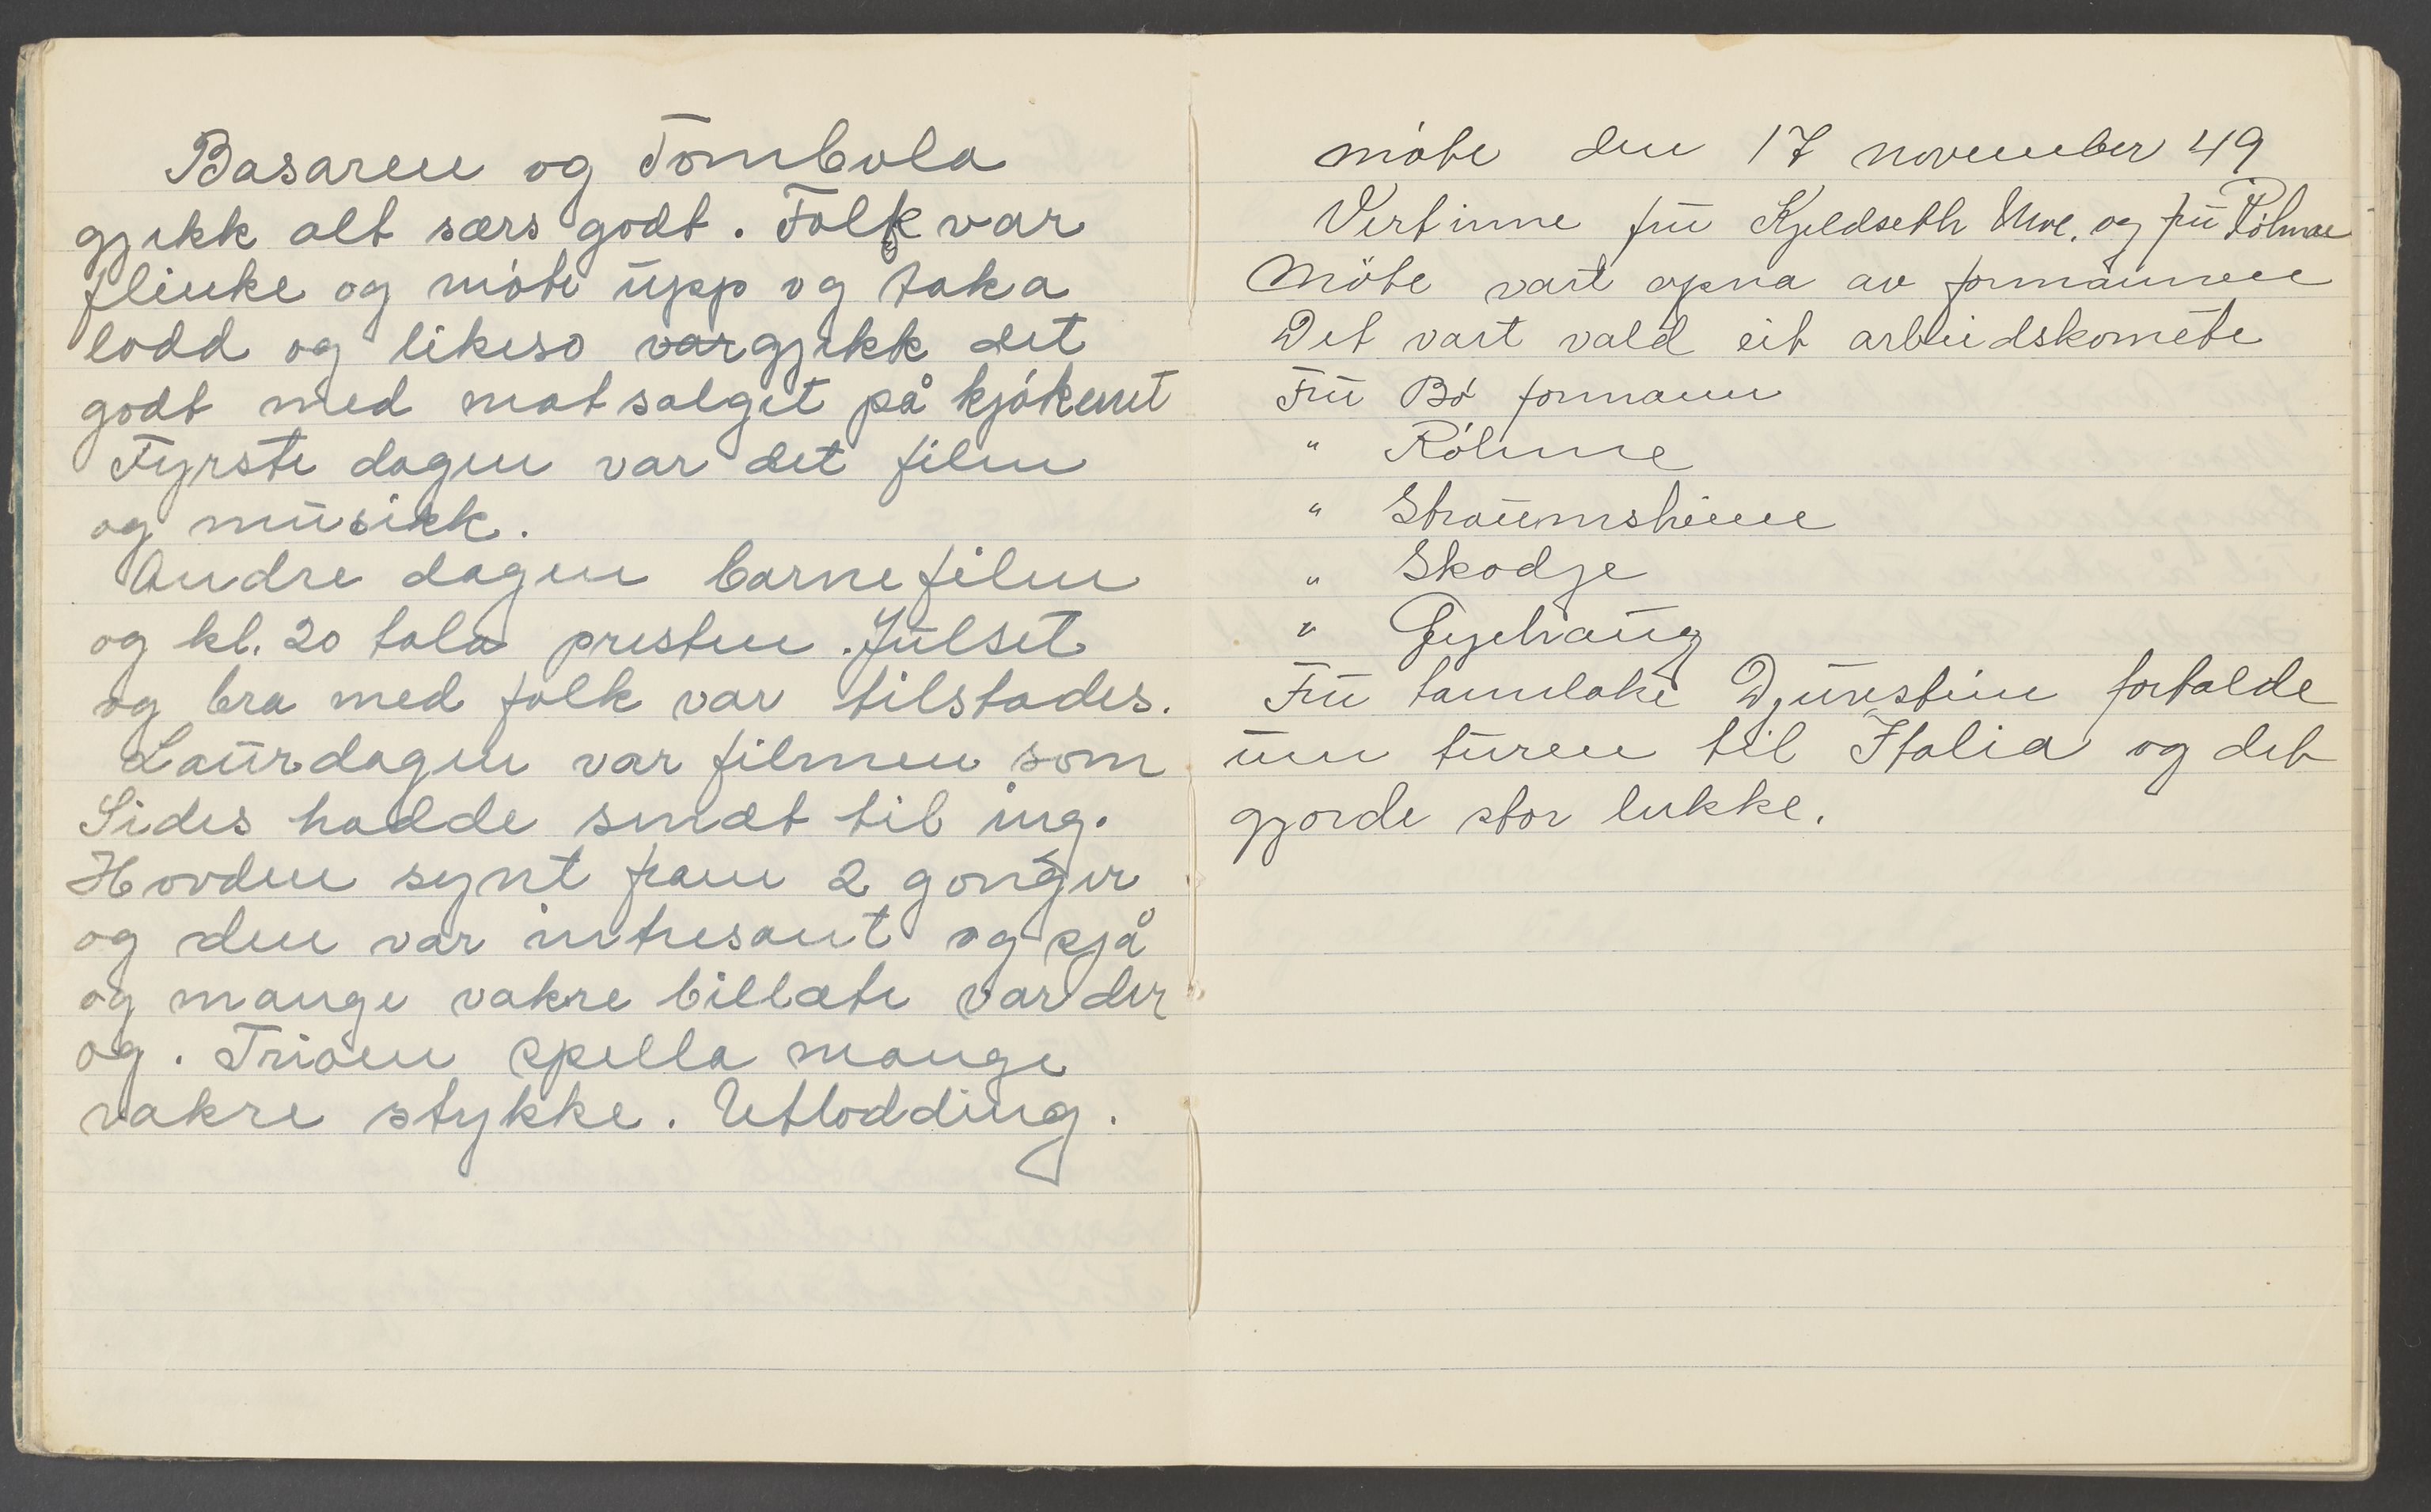 Basaren og Tombola
gjekk alt særs godt. Folk var
flinke og møte upp og taka
lodd og likeso var gjekk det
godt med matsalget på kjøkenet
Fyrste dagen var det film
og musikk.
Andre dagen barnefilm
og kl. 20 tala presten. Julset
og bra med folk var tilstades.
Laurdagen var filmen som
Sides hadde sendt til ing.
Hovden synt fram 2 gonger
og den var intresant og sjå
og mange vakre billæte var der
og. Trioen spella mange
vakre stykke. Utlodding.
møte den 17 november 49
Vertinne fru Kjeldseth Moe. og fru
Møte vart opna av formannen
Det vart vald eit arbeidskomete
Fru Bø formann
" Røhme
" Straumsheim
" Skodje
"
Fru tannlake Djuvestein fortalde
um turen til Italia og det
gjorde stor lukke.